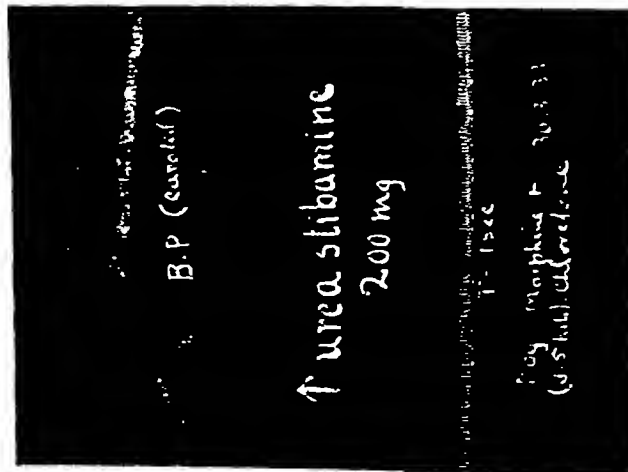 B.P (carotid)
↑ urea stibamine
200 mg
T - 1 sec
Dog Morphine + 30.3.33
chloretone